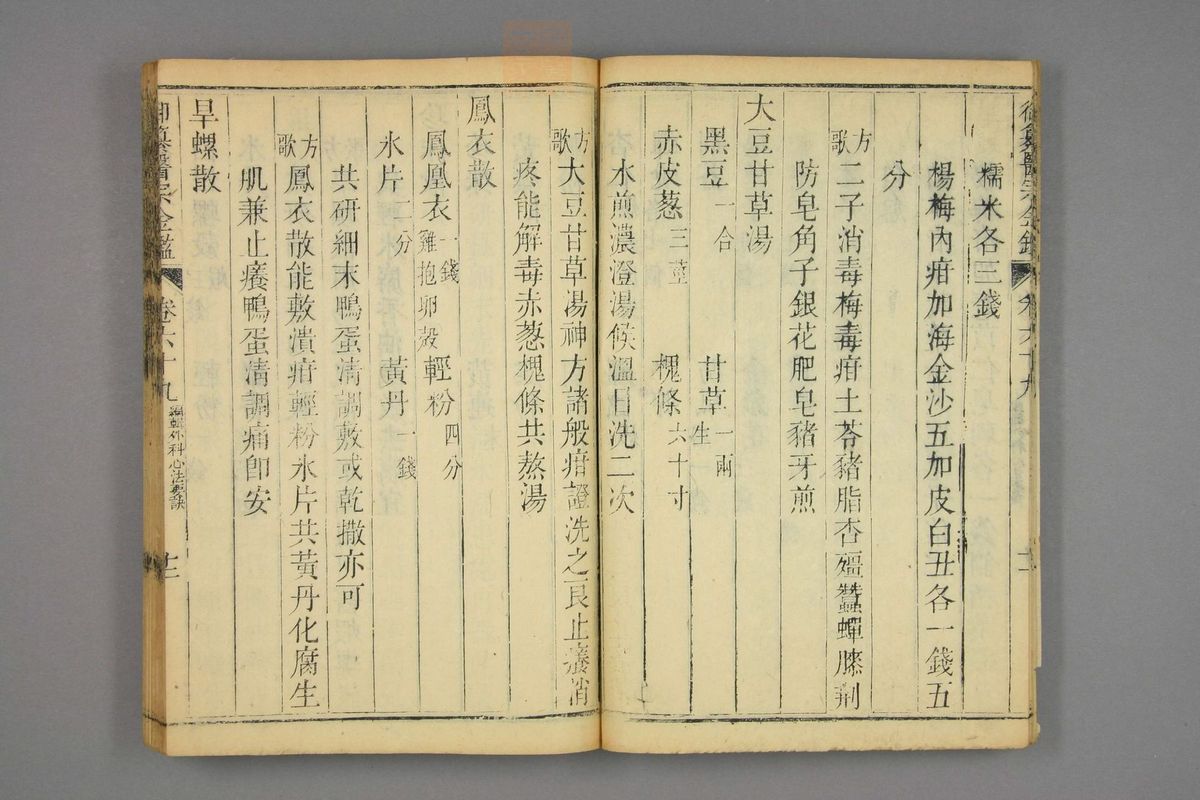 御纂醫宗金鑑 卷六十九 十二
糯米各三錢
楊梅內疳加海金沙五加皮白丑各一錢五
分
方歌 二子消毒梅毒疳土苓豬脂杏殭蠶蟬膝荊
防皂角子銀花肥皂豬牙煎
大豆甘草湯
黑豆一合 甘草生一兩
赤皮葱三莖 槐條六十寸
水煎濃澄湯候溫日洗二次
方歌 大豆甘草湯神方諸般疳證洗之良止癢消
疼能解毒赤葱槐條共熬湯
鳳衣散
鳳凰衣一錢雞抱卵殼 輕粉四分
氷片二分 黃丹一錢
共研細末鴨蛋清調敷或乾撒亦可
方歌 鳳衣散能敷潰疳輕粉氷片共黃丹化腐生
肌兼止癢鴨蛋清調痛卽安
旱螺散
御纂醫宗金鑑 卷六十九 編輯外科心法要訣 十二